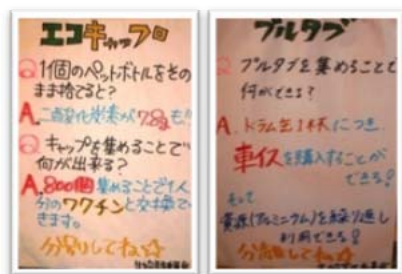 エコキャップ
Q 1個のペットボトルをその
まま捨てると?
A. 二酸化炭素が7.8gも!!
Q キャップを集めることで
何が出来る?
A. 800個集めることで1人
分のワクチンと交換で
きます。
分別してね☆
プルタブ
Q プルタブを集めることで
何ができる?
A. ドラム缶1本につき
車イスを購入することが
できる!
そして
資源(アルミニウム)を繰り返し
利用できる!
分別してね☆